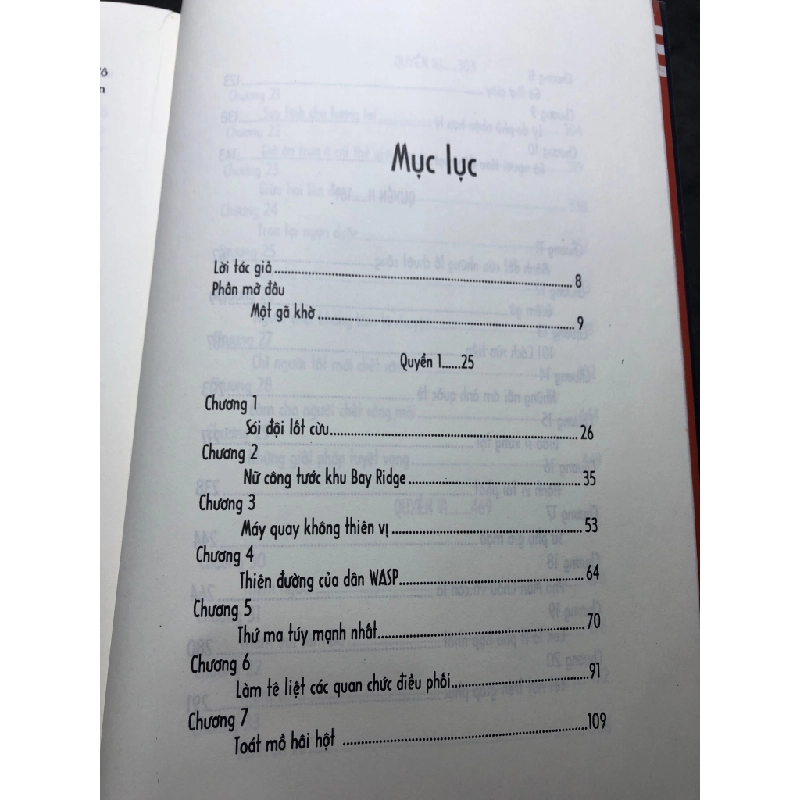 Mục lục
Lời tác giả........8
Phần mở đầu
Một gã khờ........9
Quyển 1......25
Chương 1
Sói đội lốt cừu........26
Chương 2
Nữ công tước khu Bay Ridge........35
Chương 3
Máy quay không thiên vị........53
Chương 4
Thiên đường của dân WASP........64
Chương 5
Thứ ma túy mạnh nhất........70
Chương 6
Làm tê liệt các quan chức điều phối........91
Chương 7
Toát mồ hôi hột ........109